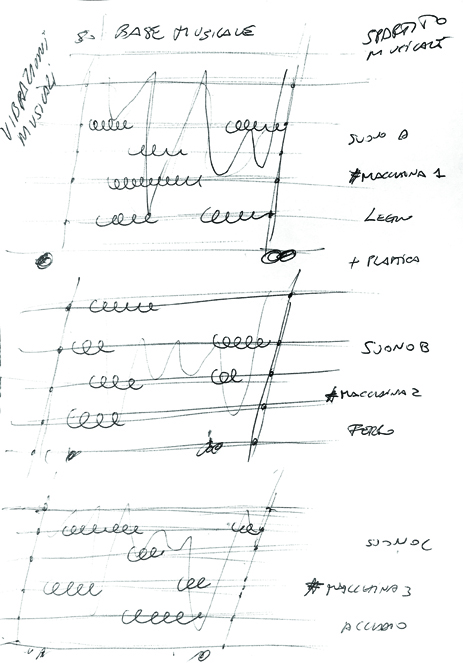 VIBRAZIONI
MUSICALI
SU BASE MUSICALE
SPARTITO
MUSICALE
SUONO A
#MACCHINA 1
LEGNO
+ PLASTICA
SUONO B
#MACCHINA 2
FERRO
SUONO C
#MACCHINA 3
ACCIAIO